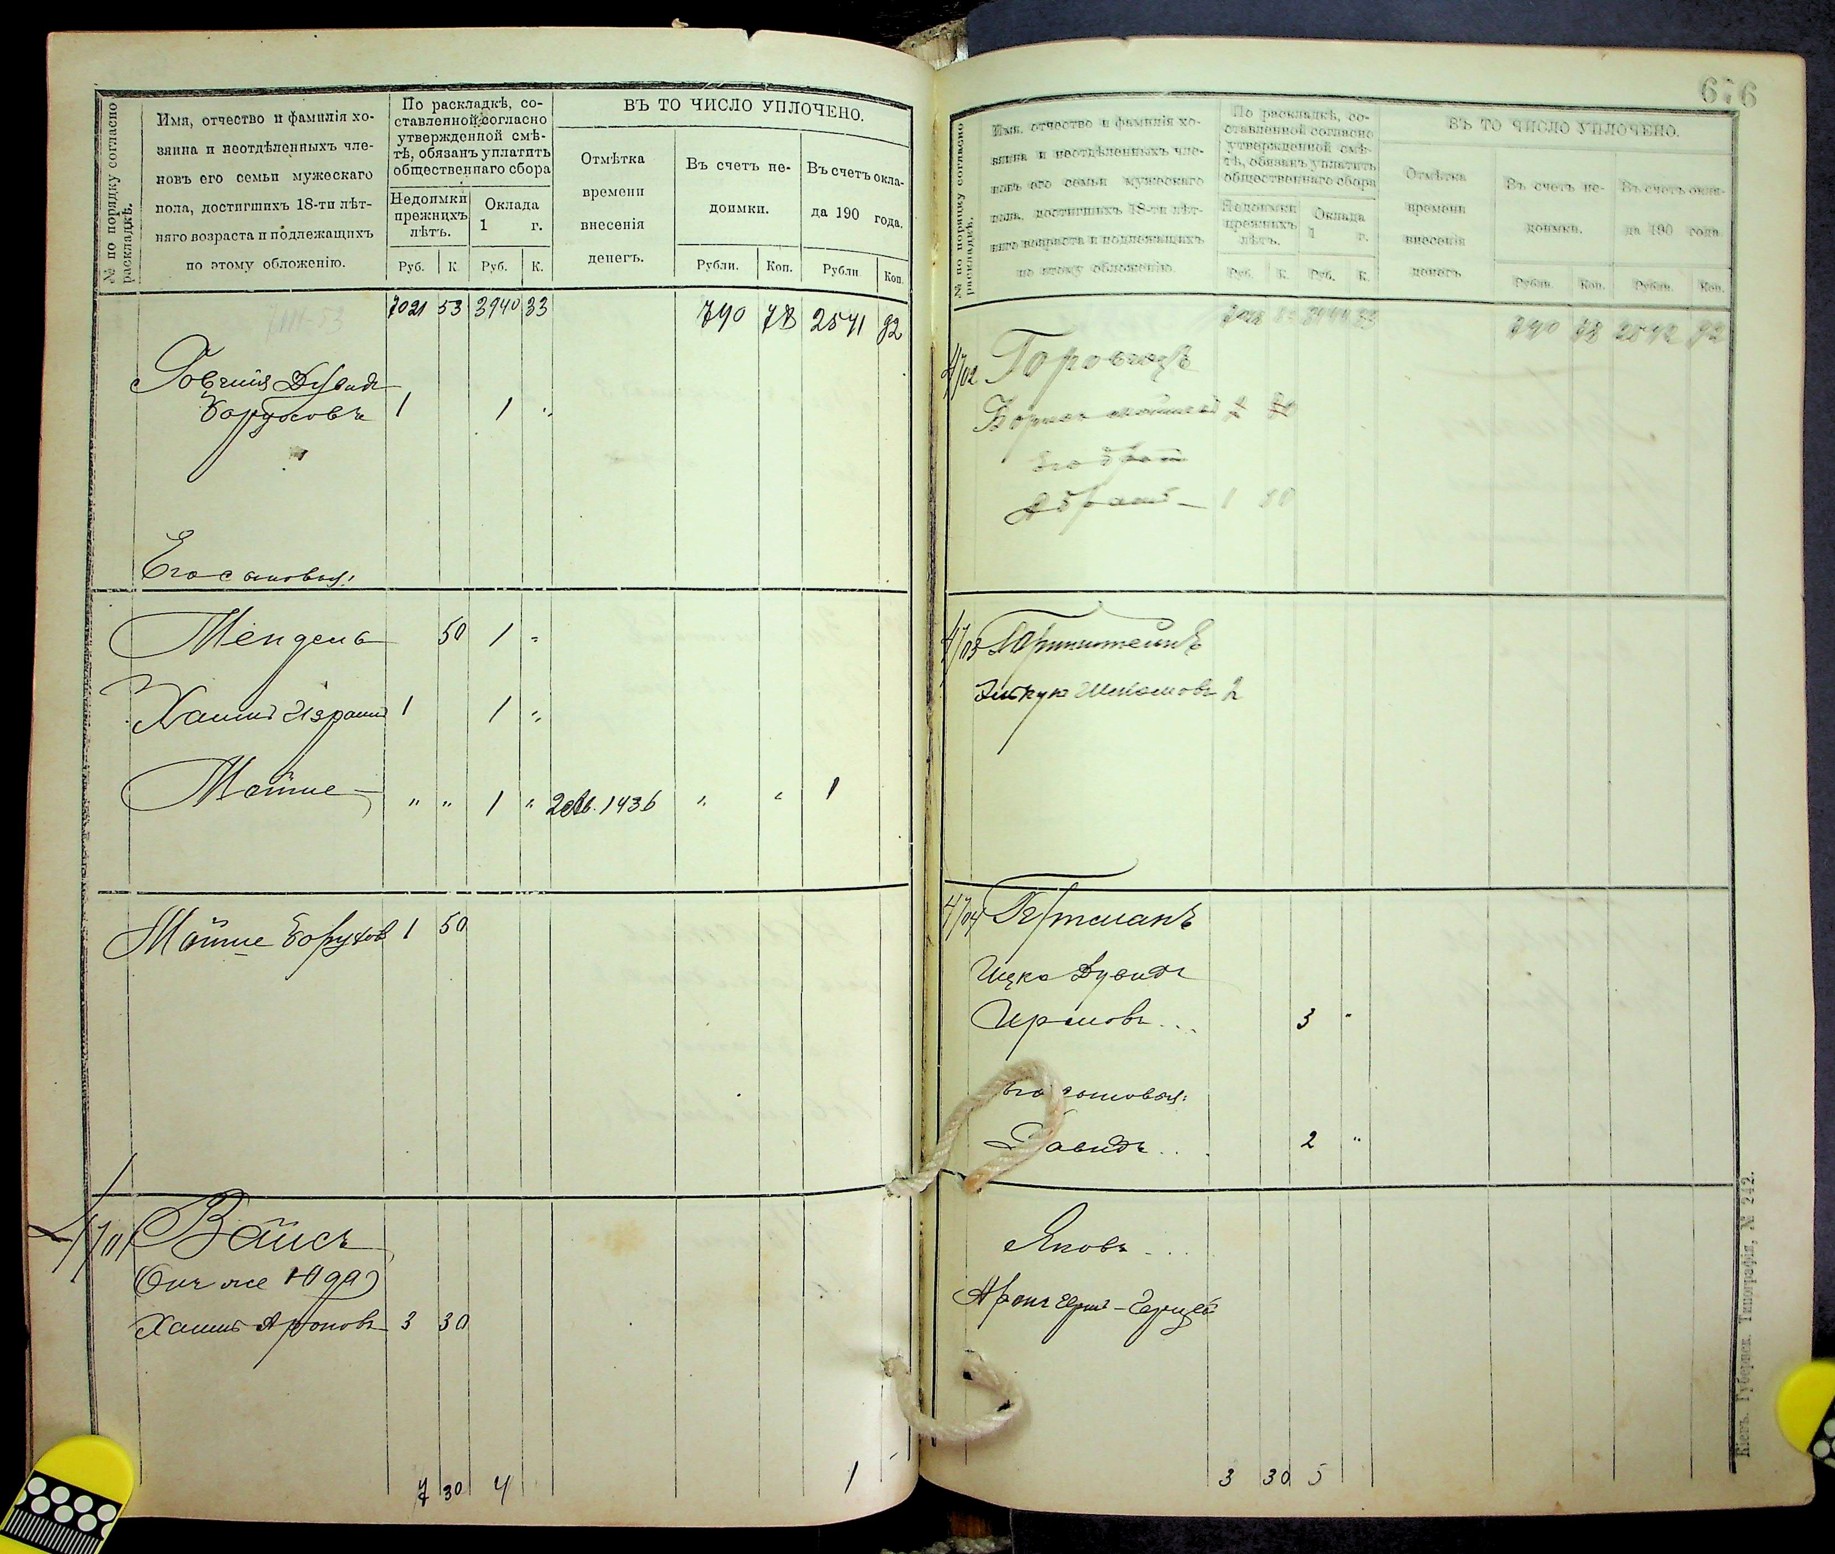 № по порядку согласно раскладкѣ.
Имя, отчество и фамилія хо-
зяина и неотдѣленныхъ чле-
новъ его семьи мужескаго
пола, достигшихъ 18-ти лѣт-
няго возраста и подлежащихъ
по этому обложенію.
По раскладкѣ, со-
ставленной согласно
утвержденной смѣ-
тѣ, обязанъ уплатить
общественнаго сбора
Недоимки
прежнихъ
лѣтъ.
Оклада
1 г.
Руб. К. Руб. К.
ВЪ ТО ЧИСЛО УПЛОЧЕНО.
Отмѣтка
времени
внесенія
денегъ.
Въ счетъ не-
доимки.
Въ счетъ окла-
да 190 года.
Рубли. Коп. Рубли Коп.
7021 53 3940 33 790 78 2541 82
Дувидъ
Боруховъ 1 1 "
Его сыновья:
Мендель 50 1 "
Хаимъ Израиль 1 1 "
Мойше " " 1 " 1436 " " 1
Мойше Борухов 1 50
4701 Вайсъ
(Онъ же Юда)
Хаимъ Ароновъ 3 30
7 30 4 1 -
676
№ по порядку согласно раскладкѣ.
Имя, отчество и фамилія хо-
зяина и неотдѣленныхъ чле-
новъ его семьи мужескаго
пола, достигшихъ 18-ти лѣт-
няго возраста и подлежащихъ
по этому обложенію.
По раскладкѣ, со-
ставленной согласно
утвержденной смѣ-
тѣ, обязанъ уплатить
общественнаго сбора
Недоимки
прежнихъ
лѣтъ.
Оклада
1 г.
Руб. К. Руб. К.
ВЪ ТО ЧИСЛО УПЛОЧЕНО.
Отмѣтка
времени
внесенія
денегъ.
Въ счетъ не-
доимки.
Въ счетъ окла-
да 190 года
Рубли. Коп. Рубли. Коп.
790 78 82
4702 Горовицъ
Его братъ
Абрамъ 1 80
4703
Шлiомовъ 2
4704 Гутманъ
Ицко Дувидъ
Ирмовъ 3 "
Его сыновья:
Давидъ 2 "
Яковъ
Аронъ Гершъ
3 30 5
Кіевъ. Губернск. Типографія, № 242.